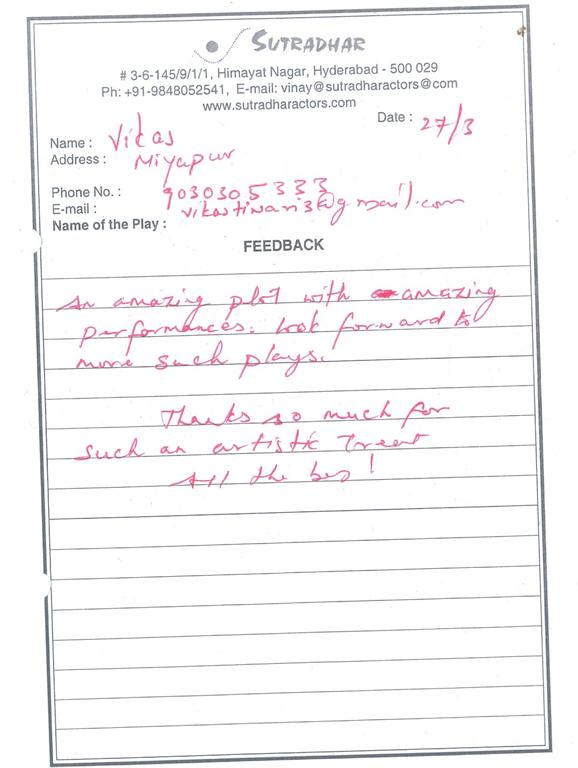 SUTRADHAR
# 3-6-145/9/1/1, Himayat Nagar, Hyderabad - 500 029
Ph: +91-9848052541, E-mail: vinay@sutradharactors@com
www.sutradharactors.com
Date : 27/3
Name : Vikas
Address : Miyapur
Phone No. : 9030305333
E-mail : vikastiwari3@gmail.com
Name of the Play :
FEEDBACK
An amazing plot with amazing
performances. look forward to
more such plays.
Thanks so much for
such an artistic Treat
All the bes!